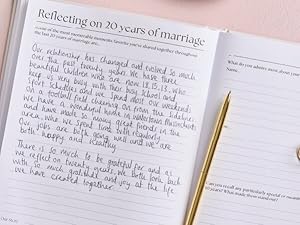 Reflecting on 20 years of marriage
of the most memorable moments favorite you've shared together throughout
the last 20 years of marriage are...
Our relationship has changed and evolved so much
over the past twenty years. We have three
beautiful children who are now 18, 15, 13 who
keep us very busy with their busy school and
sport schedules and we spend most our weekends
on a football field cheering on from the sidelines.
We have a wonderful home in
and have made so many great friends in the
area, who we spend time with regularly.
Our jobs are both going well and we are
both happy and healthy.
There is so much to be grateful for and as
we reflect on twenty years, we both look back
with so much gratitude and joy at the life
we have created together.
What do you admire most about
Name...
you recall any particularly special or
20 years? What made them stand out?